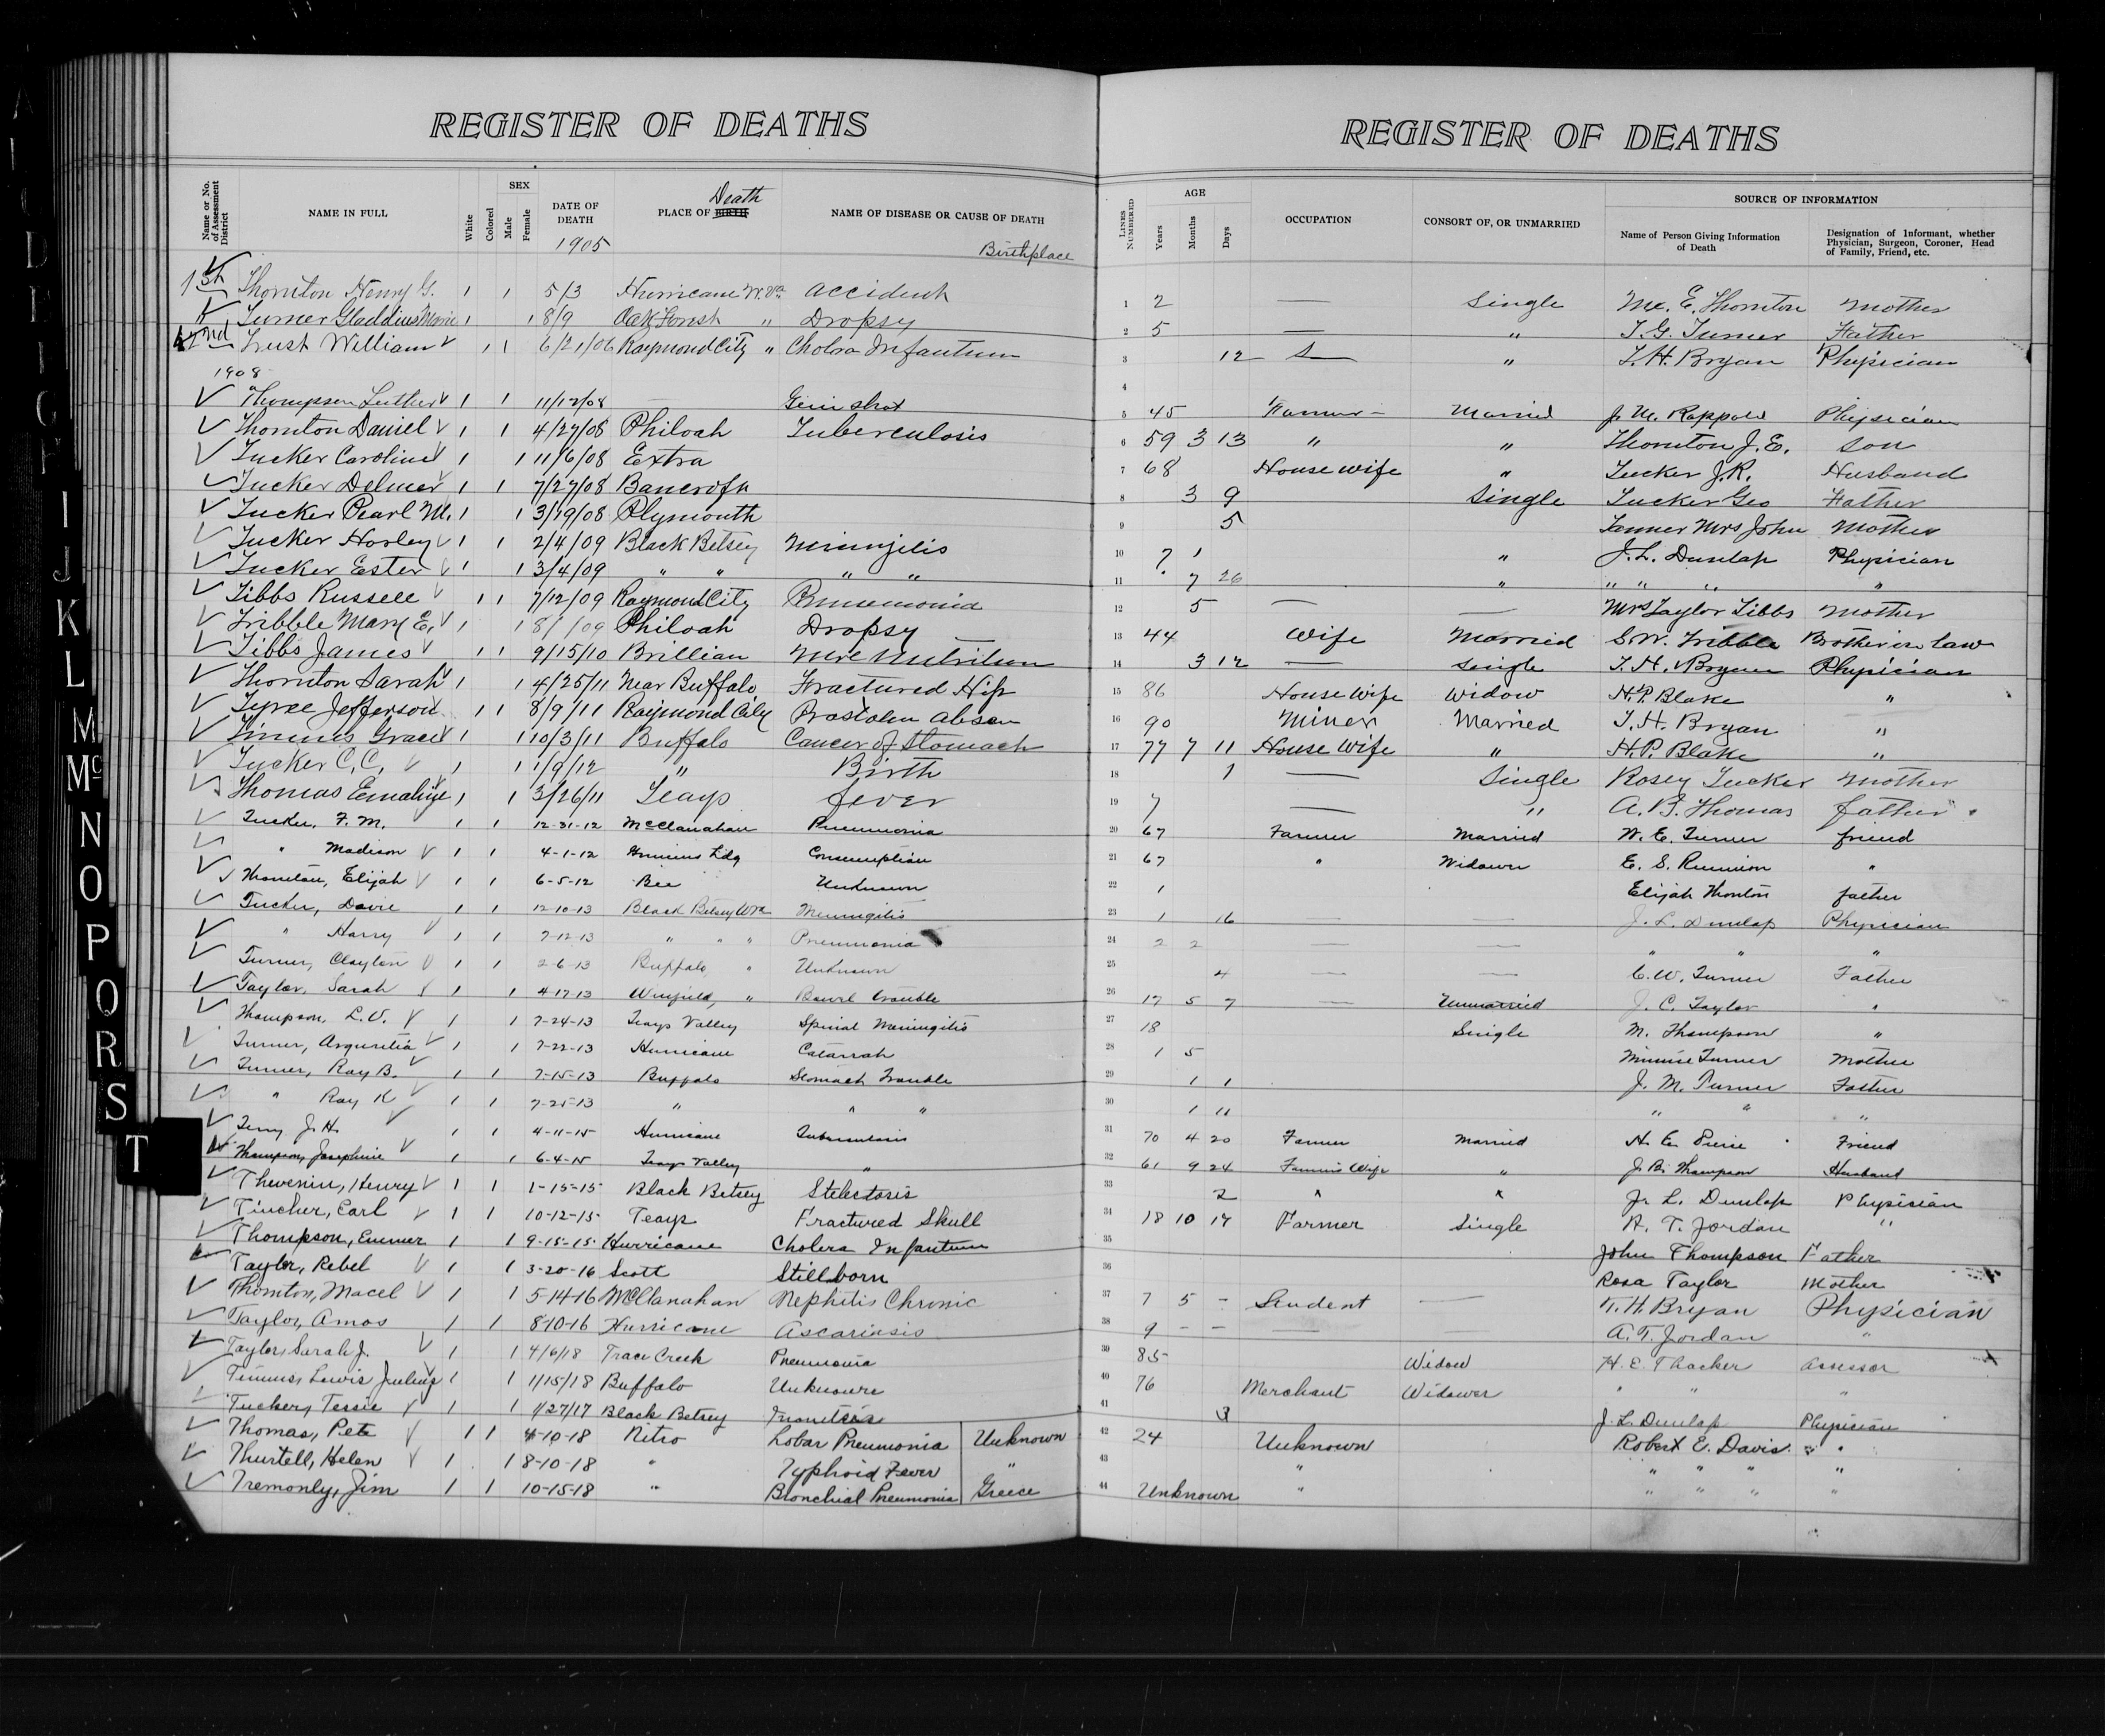 REGISTER OF DEATHS
Name or No. of Assessment District NAME IN FULL White Colored SEX Male Female DATE OF DEATH PLACE OF BIRTH Death NAME OF DISEASE OR CAUSE OF DEATH
1905 Birthplace
1st Thornton Henry G. 1 1 5/3 Hurricane W.Va accident
Turner Gladdius Marie 1 1 8/9 Oak Forest " Dropsy
2nd Trust William 1 1 6/21/06 Raymond City " Cholra Infantum
1908
Thompson Luther 1 1 11/12/08 — Gun shot
Thornton Daniel 1 1 4/27/08 Philoah Tuberculosis
Tucker Caroline 1 1 11/6/08 Extra
Tucker Delmer 1 1 7/27/08 Bancroft
Tucker Pearl M. 1 1 3/19/08 Plymouth
Tucker Horley 1 1 2/4/09 Black Betsey
Tucker Ester 1 1 3/4/09 " " " "
Tibbs Russell 1 1 7/12/09 Raymond City
Tribble Mary E. 1 1 8/1/09 Philoah Dropsy
Tibbs James 1 1 9/15/10 Brillian
Thornton Sarah 1 1 4/25/11 Near Buffalo Fractured Hip
Tyree Jefferson 1 1 8/9/11 Raymond City
Timms Grace 1 1 10/3/11 Buffalo Cancer of Stomach
Tucker C. C. 1 1 1/9/12 " Birth
Thomas Emaline 1 1 3/26/11 Teays fever
Tucker, F. M. 1 1 12-31-12 McClanahan Pneumonia
" Madison 1 1 4-1-12 Ldg Consumption
Thornton, Elijah 1 1 6-5-12 Bee Unknown
Tucker, Davie 1 1 12-10-13 Black Betsey W Va Meningitis
" Harry 1 1 7-12-13 " " " Pneumonia
Turner, Clayton 1 1 2-6-13 Buffalo, " Unknown
Taylor, Sarah 1 1 4-17-13 Winfield, " Bowel trouble
Thompson, L. V. 1 1 7-24-13 Teays Valley Spinal Meningitis
Turner, 1 1 7-22-13 Hurricane Catarrah
Turner, Ray B. 1 1 7-15-13 Buffalo Stomach Trouble
" Ray K 1 1 7-25-13 " " "
Terry J. H. 1 1 4-11-15 Hurricane Tuberculosis
Thompson, Josephine 1 1 6-4-15 Teays Valley "
Thevenin, Henry 1 1 1-15-15 Black Betsey Stelectosis
Tincher, Earl 1 1 10-12-15 Teays Fractured Skull
Thompson, Emmer 1 1 9-15-15 Hurricane Cholera Infantum
Taylor, Rebel 1 1 3-20-16 Scott Stillborn
Thornton, Macel 1 1 5-14-16 McClanahan Nephitis Chronic
Taylor, Amos 1 1 8-10-16 Hurricane Ascariasis
Taylor, Sarah J. 1 1 4/6/18 Trace Creek Pneumonia
Timms, Lewis Julius 1 1 1/15/18 Buffalo Unknown
Tucker, Tessie 1 1 1/27/17 Black Betsey
Thomas, Pete 1 1 4-10-18 Nitro Lobar Pneumonia Unknown
Thurtell, Helen 1 1 8-10-18 " Typhoid Fever "
Tremonly, Jim 1 1 10-15-18 " Bronchial Pneumonia Greece
REGISTER OF DEATHS
LINES NUMBERED AGE Years Months Days OCCUPATION CONSORT OF, OR UNMARRIED SOURCE OF INFORMATION
Name of Person Giving Information of Death Designation of Informant, whether Physician, Surgeon, Coroner, Head of Family, Friend, etc.
1 2 — Single E. Thornton Mother
2 5 — " T. G. Turner Father
3 12 " T. H. Bryan Physician
4
5 45 Farmer Married J. M. Rappold Physician
6 59 3 13 " " Thornton J. E. Son
7 68 House wife " Tucker J. R. Husband
8 3 9 Single Tucker Geo Father
9 5 Mrs John Mother
10 7 1 " J. L. Dunlap Physician
11 7 26 " " " " "
12 5 — — Mrs Taylor Tibbs Mother
13 44 Wife Married S. W. Tribble Brother in law
14 3 12 — Single T. H. Bryan Physician
15 86 House Wife Widow H. P. Blake "
16 90 Miner Married T. H. Bryan "
17 77 7 11 House Wife " H. P. Blake "
18 1 — Single Rosey Tucker Mother
19 7 — " A. B. Thomas father
20 67 Farmer Married W. E. Turner friend
21 67 " Widower E. S. "
22 1 Elijah Thonton father
23 1 16 — — J. L. Dunlap Physician
24 2 2 — — " " "
25 4 — — C. W. Turner Father
26 17 5 7 — Unmarried J. C. Taylor "
27 18 Single M. Thompson "
28 1 5 Minnie Turner Mother
29 1 1 J. M. Turner Father
30 1 11 " " "
31 70 4 20 Farmer Married H. E. Friend
32 61 9 24 Farmers Wife " J. B. Thompson Husband
33 2 " " J. L. Dunlap Physician
34 18 10 17 Farmer Single A. T. Jordan "
35 John Thompson Father
36 Rosa Taylor Mother
37 7 5 - Student — T. H. Bryan Physician
38 9 - - — — A. T. Jordan "
39 85 Widow H. E. Thacker Assessor
40 76 Merchant Widower " " "
41 3 J. L. Dunlap Physician
42 24 Unknown Robert E. Davis " "
43 " " " " "
44 Unknown " " " " "
A
C
D
E
G
H
I
J
K
L
M
Mc
N
O
P
Q
R
S
T